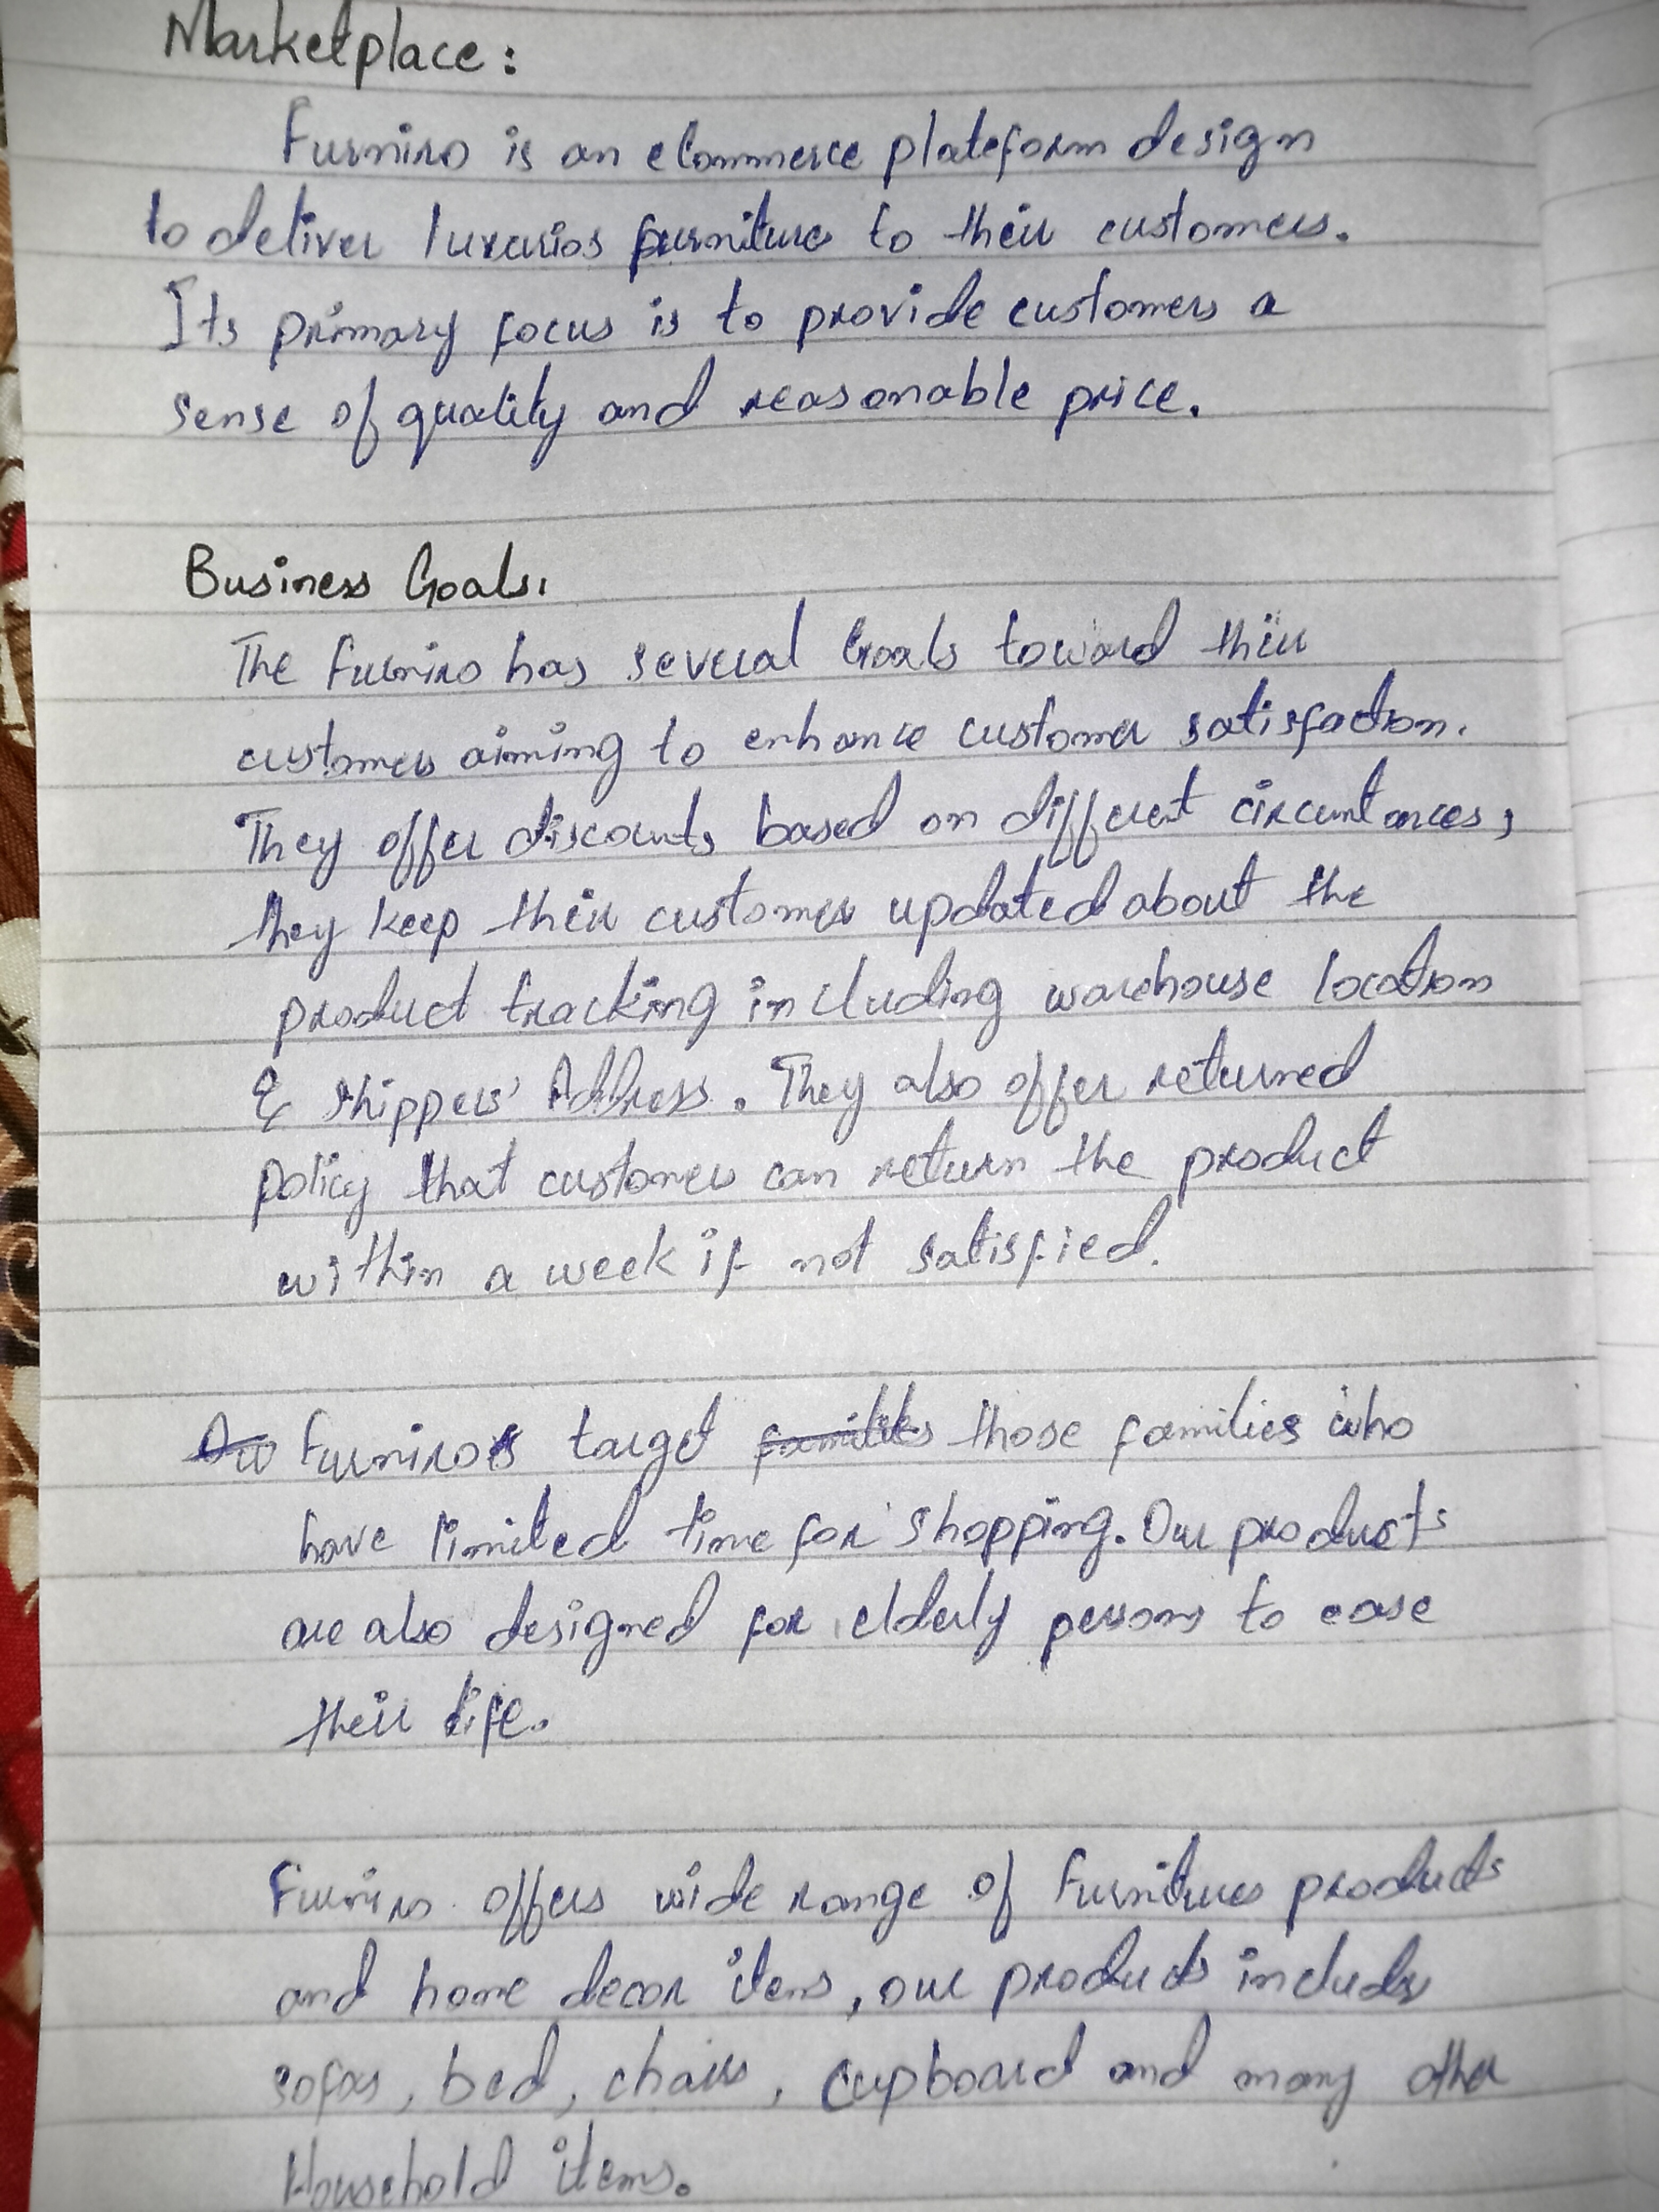 Marketplace:
Furniro is an eCommerce plateform design
to deliver luxurios furniture to their customers.
Its primary focus is to provide customers a
sense of quality and reasonable price.
Business Goals.
The Furniro has several Goals toward their
customers aiming to enhance customer satisfaction.
They offer discounts based on different circumtances,
they keep their customer updated about the
product tracking including warehouse location
& shippers' Address. They also offer returned
policy that customer can return the product
within a week if not satisfied.
Furniro's target those families who
have limited time for shopping. Our products
are also designed for elderly persons to ease
their life.
Furniro offers wide range of Furnitures products
and home decor items, our products includes
sofas, bed, chairs, cupboard and many other
Household items.